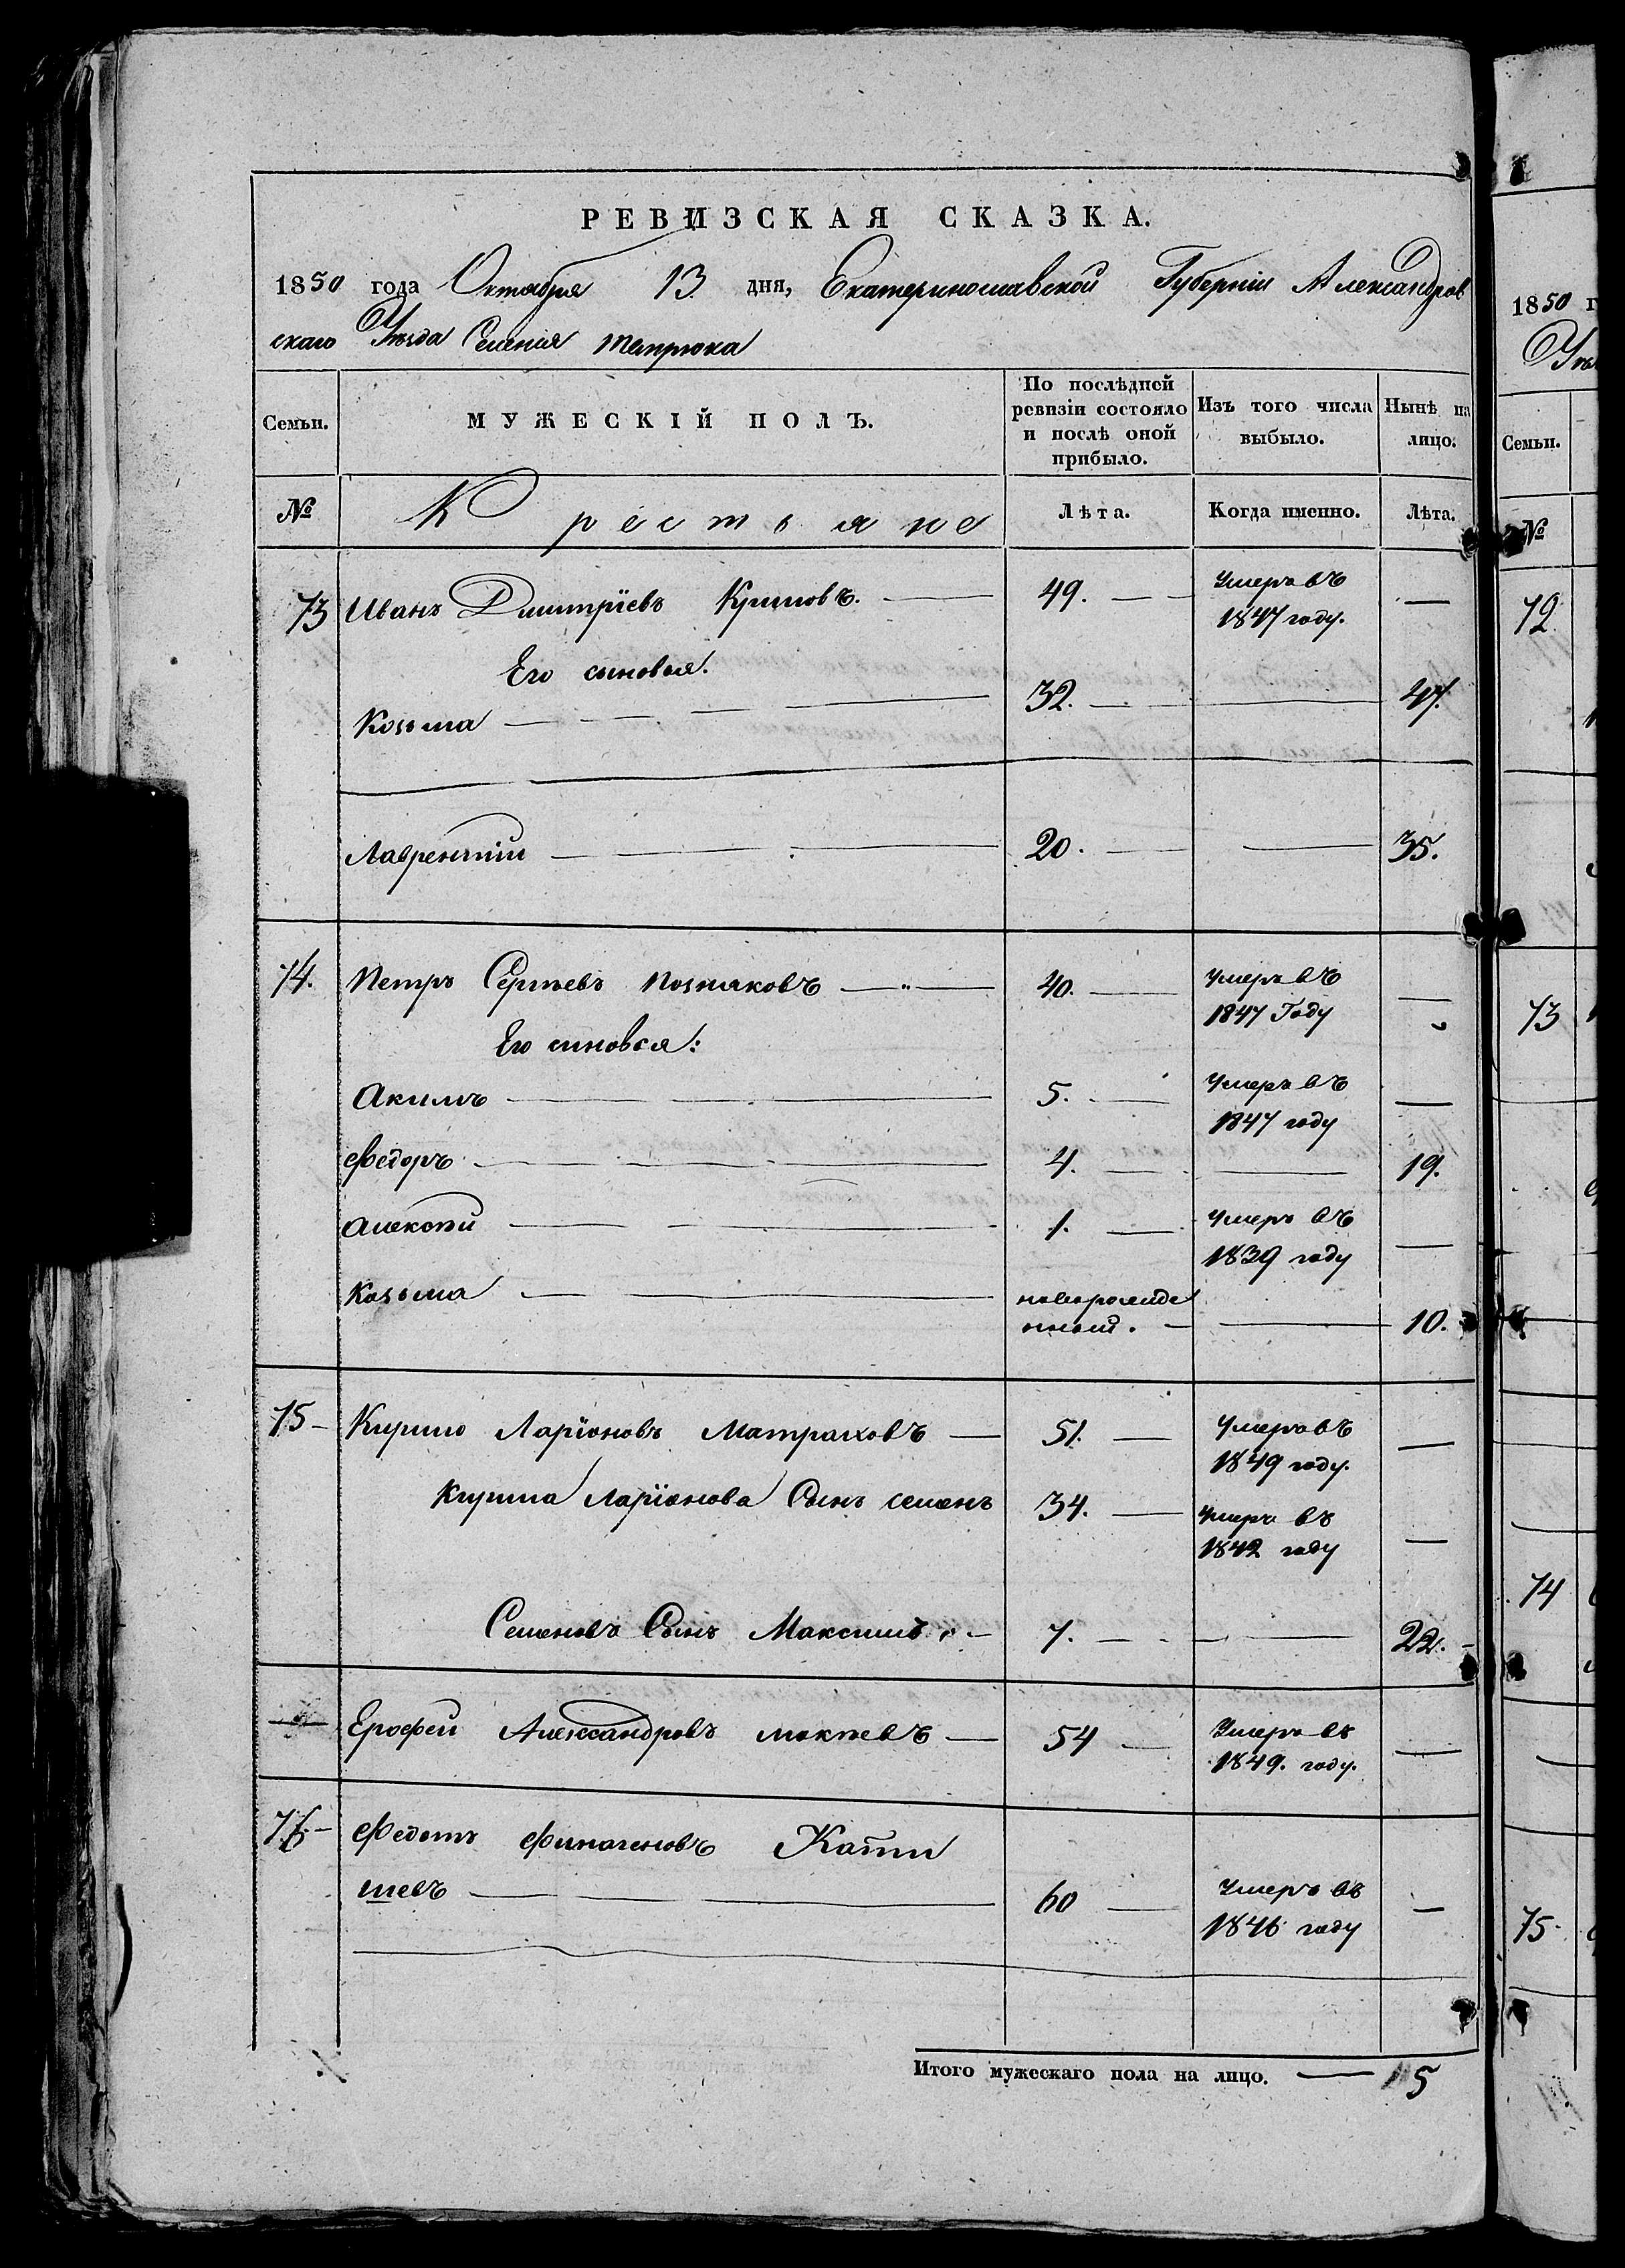 РЕВИЗСКАЯ СКАЗКА.
1850 года Октября 13 дня, Екатеринославской Губерніи Александров
скаго Уѣзда Селенія Темрюка
Семьи. МУЖЕСКІЙ ПОЛЪ. По послѣдней ревизіи состояло и послѣ оной прибыло. Изъ того числа выбыло. Нынѣ на лицо.
№ Крестьяне Лѣта. Когда именно. Лѣта.
73 Иванъ Дмитріевъ 49. Умеръ въ 1847 году. —
Его сыновья.
Козьма 32. — 47.
Лаврентій 20. — 35.
74. Петръ Сергѣевъ Позняковъ 40. Умеръ въ 1847 Году —
Его сыновья:
Акимъ 5. Умеръ въ 1847 году —
Федоръ 4. — 19.
Алексѣй 1. Умеръ въ 1839 году —
Козьма новорожде нный. — 10.
75 Кирило Ларіоновъ 51. Умеръ въ 1849 году. —
Кирила Ларіонова Сынъ Семенъ 34. Умеръ въ 1842 году —
Семеновъ Сынъ Максимъ 7. — 22.
Ерофей Александровъ 54 Умеръ въ 1849. году. —
76 Федотъ Катти
шевъ 60 Умеръ въ 1846 году —
Итого мужескаго пола на лицо. — 5
1850 г
Семьи.
№
72
73
74
75